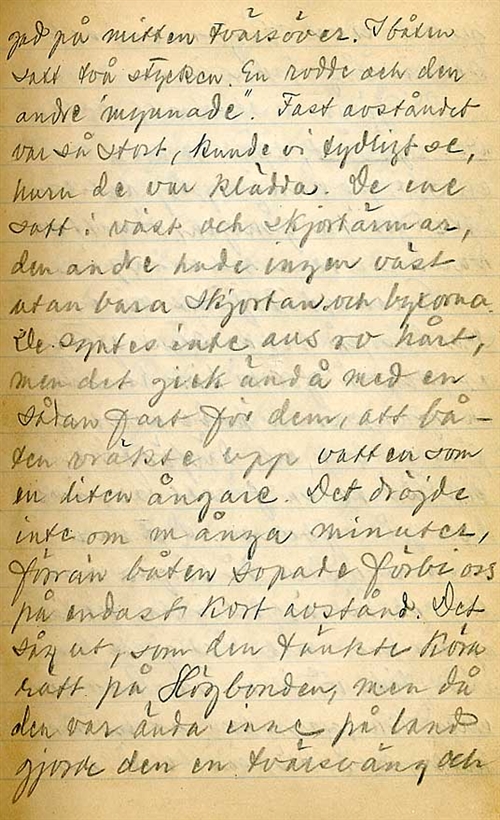 gad på mitten tvärsöver. I båten
satt två stycken. En rodde och den
andre "mynnade". Fast avståndet
var så stort, kunde vi tydligt se,
huru de var klädda. De ene
satt i väst och skjortärmar,
den andre hade ingen väst
utan bara skjortan och byxorna.
De syntes inte aus ro hårt,
men det gick ändå med en
sådan fart för dem, att bå-
ten vräkte upp vatten som
en liten ångare. Det dröjde
inte om många minuter,
förrän båten sopade förbi oss
på endast kort avstånd. Det
såg ut, som den tänkte köra
rätt på Högbonden, men då
den var ända inne på land
gjorde den en tvärsväng och